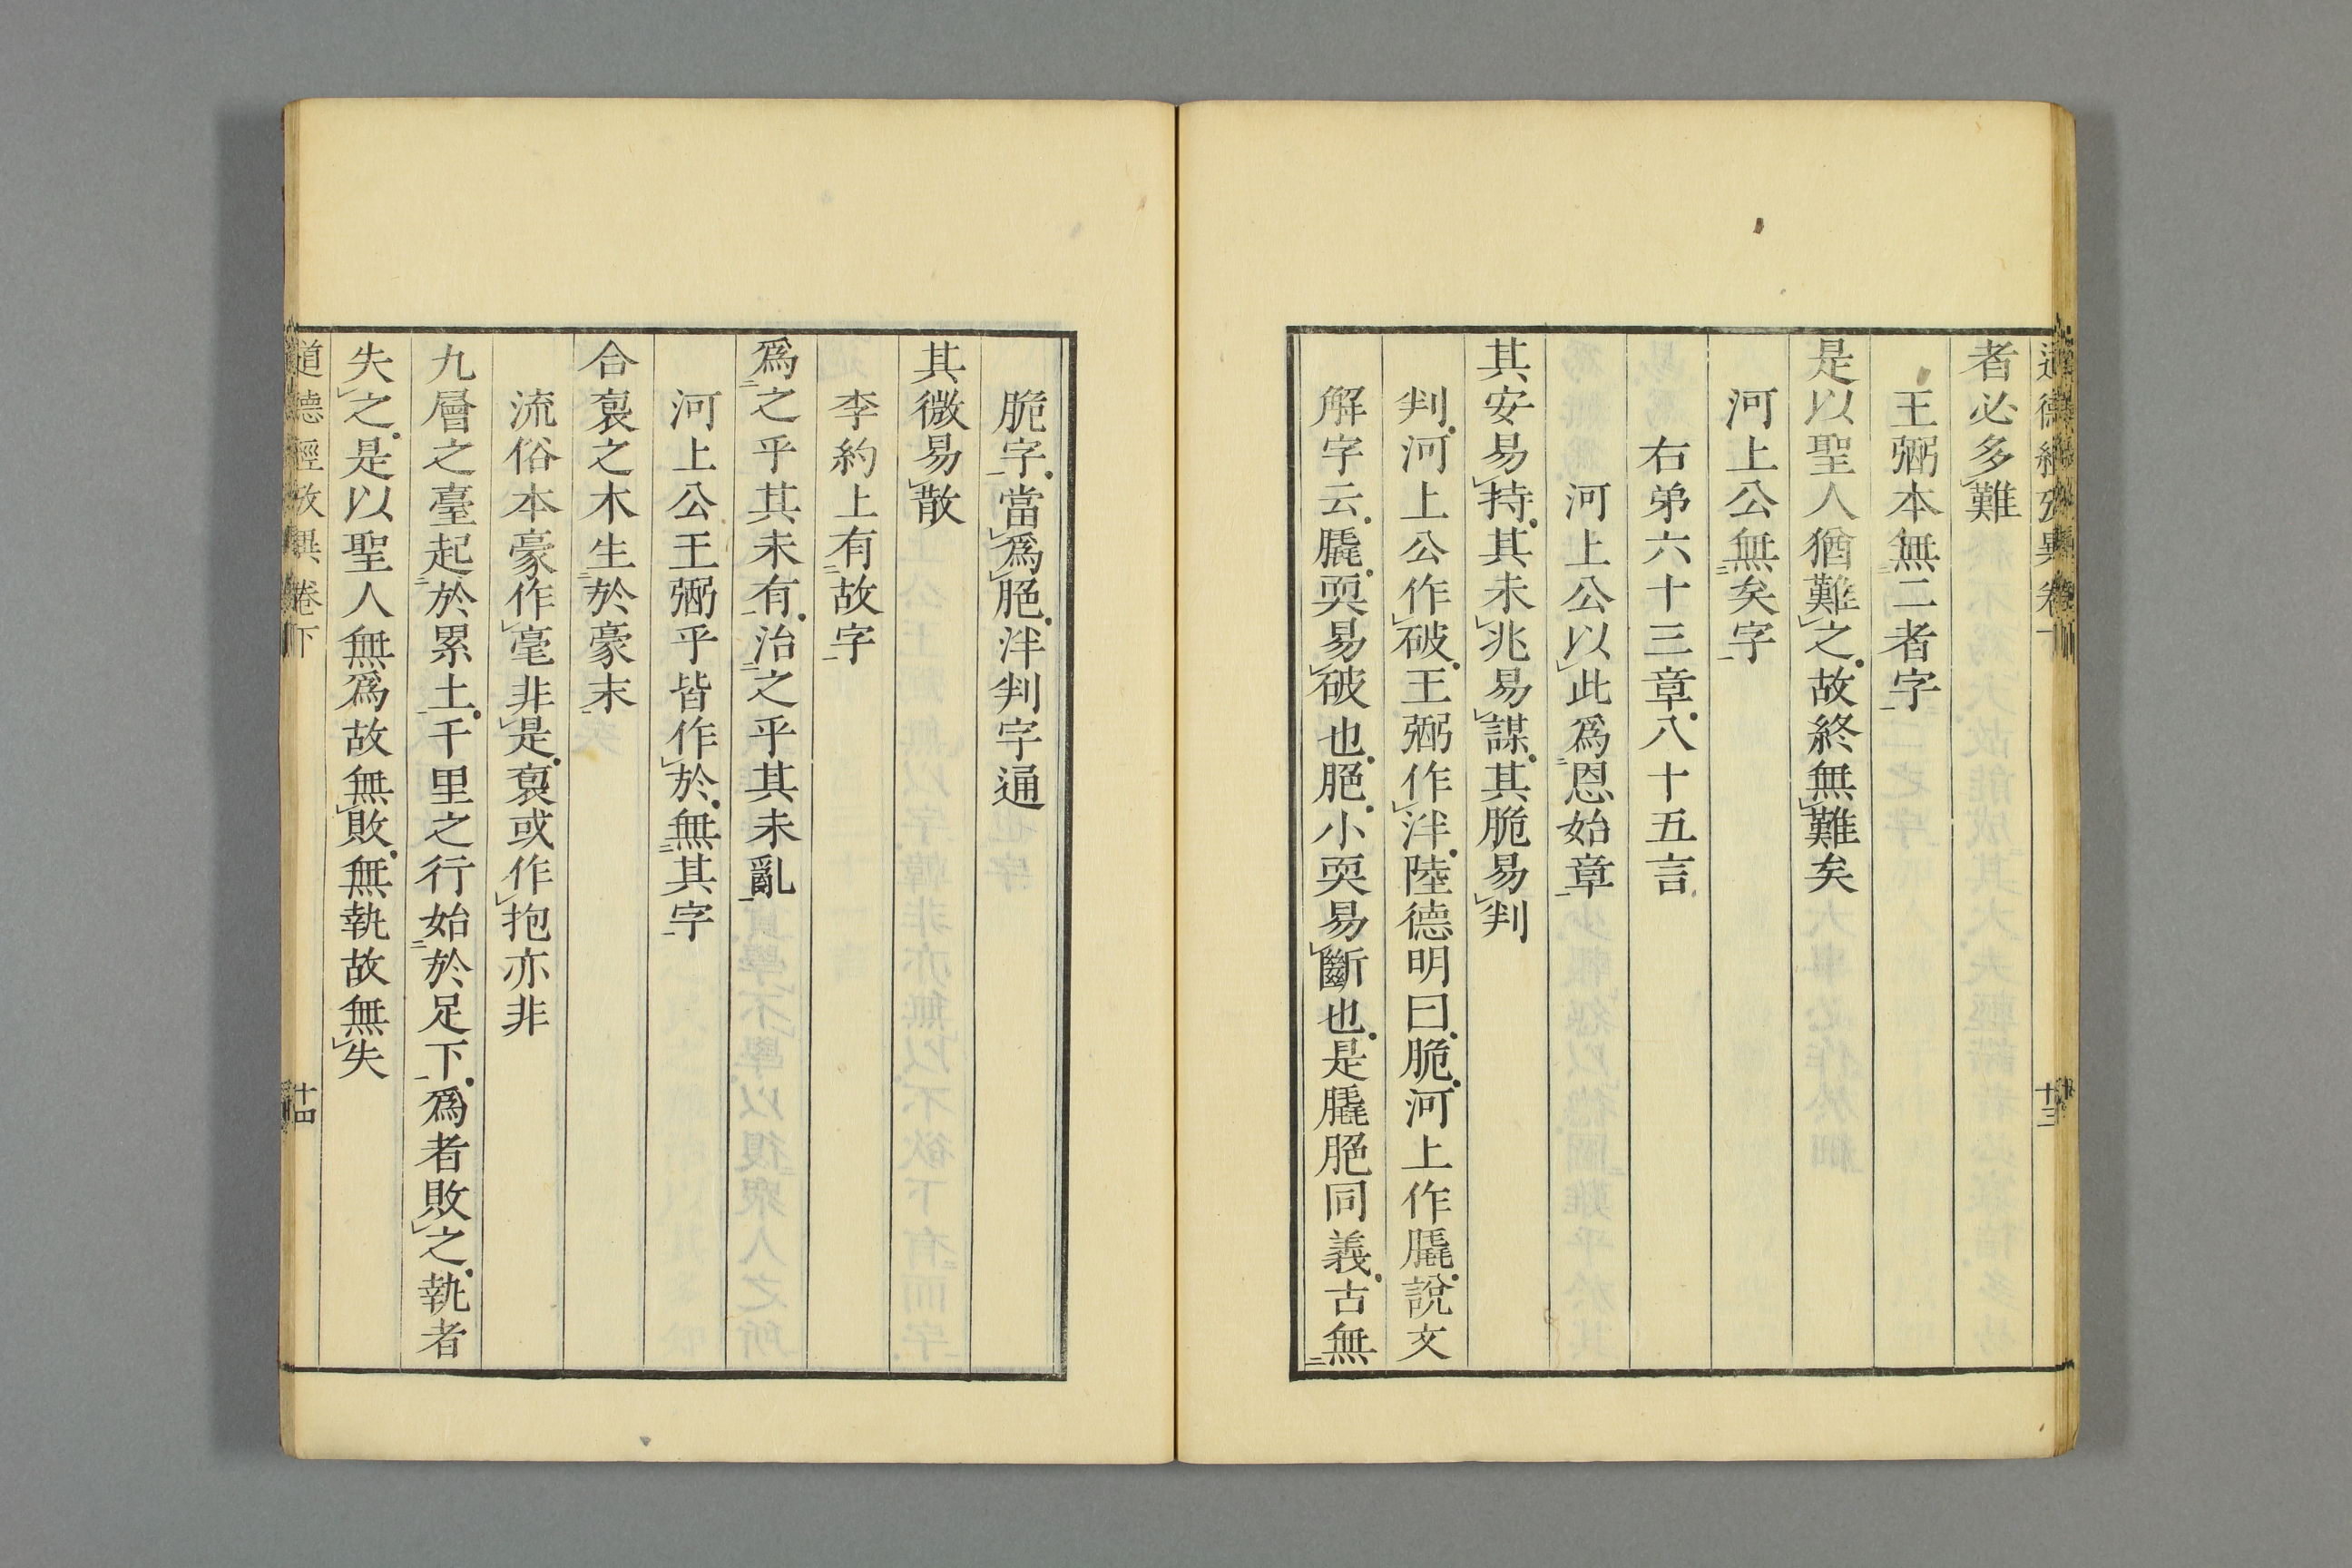 者必多難
王弼本無二者字
是以聖人猶難之故終無難矣
河上公無矣字
右弟六十三章八十五言
河上公以此爲恩始章
其安易持其未兆易謀其脆易判
判河上公作破王弼作泮陸德明曰脆河上作膬說文
解字云膬耎易破也脃小耎易斷也是膬脃同義古無
脆字當爲脃泮判字通
其微易散
李約上有故字
爲之乎其未有治之乎其未亂
河上公王弼乎皆作於無其字
合裒之木生於豪末
流俗本豪作毫非是裒或作抱亦非
九層之臺起於累土千里之行始於足下爲者敗之執者
失之是以聖人無爲故無敗無執故無失
道德經攷異卷下 十四